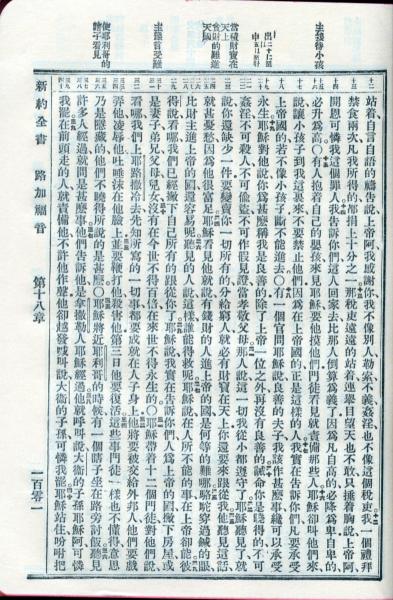 主接待小孩
出二十。十二至十六。申五。十六至二十
當積財寶在天上
貪財的難進天國
主預言受難
使耶利哥的瞎子看見
站着、自言自語的禱告說、上帝阿、我感謝你、我不像別人、勒索不義姦淫、也不像這個稅吏、我一個禮拜
禁食兩次、凡我所得的、都捐上十分之一、那稅吏遠遠的站着、連舉目望天也不敢、只捶着胸說、上帝阿、
開恩可憐我這個罪人、我告訴你們、這人回家去、比那人倒算爲義了、因爲凡自高的必降爲卑、自卑的
必升爲高○有人抱着自己的嬰孩來見耶穌、要他摸他們、門徒看見就責備那些人、耶穌卻叫他們來
說、讓小孩子到我這裏來、不要禁止他們、因爲在上帝國的、正是這樣的人、我實在告訴你們、凡要承受
上帝國的、若不像小孩子、斷不能進去○有一個官問耶穌說、良善的夫子、我該作甚麼事、纔可以承受
永生、耶穌對他說、你爲甚麼稱我是良善的、除了上帝一位之外、再沒有良善的、誡命你是曉得的、不可
姦淫、不可殺人、不可偷盜、不可作假見證、當孝敬父母、那人說、這一切我從小都遵守了、耶穌聽見了、就
說、你還缺少一件、要變賣你一切所有的、分給窮人、就必有財寶在天上、你還要來跟從我、他聽見這話、
就甚憂愁、因爲他很富、耶穌看見他就說、有錢財的人進上帝的國、是何等的難哪、駱駝穿過鍼的眼、
比財主進上帝的國、還容易呢、聽見的人說、這樣誰能得救呢、耶穌說、在人所不能的事、在上帝卻能、彼
得說、看哪、我們已經撇下自己所有的跟從你了、耶穌說、我實在告訴你們、人爲上帝的國、撇下房屋、或
是妻子弟兄父母兒女、沒有在今世不得百倍、在來世不得永生的○耶穌帶着十二個門徒、對他們說、
看哪、我們上耶路撒冷去、先知所寫的一切事、都要成就在人子身上、他將要被交給外邦人、他們要戲
弄他、凌辱他、吐唾沫在他臉上、並要鞭打他、殺害他、第三日他要復活、這些事門徒一樣也不懂得、意思
乃是隱藏的、他們不曉得所說的是甚麼○耶穌將近耶利哥的時候、有一個瞎子坐在路旁討飯、聽見
許多人經過、就問是甚麼事、他們告訴他、是拿撒勒人耶穌經過、他就呼叫說、大衛的子孫耶穌阿、可憐
我罷、在前頭走的人、就責備他、不許他作聲、他卻越發喊叫說、大衛的子孫、可憐我罷、耶穌站住、吩咐把
新約全書 路加福音 第十八章 一百零一